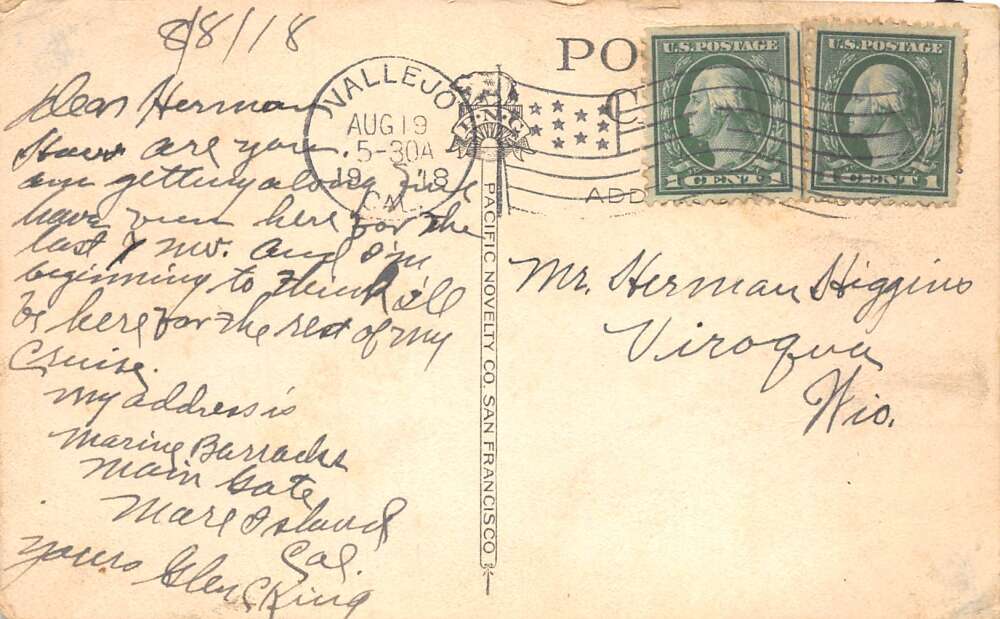 8/8/18
Dear Herman
How are you.
am getting along fine
have been here for the
last 7 mo. and I'm
beginning to think i'll
be here for the rest of my
Cruise.
my address is
Marine Barracks
Main Gate
Mare Island
Cal.
yours Glen C King
VALLEJO
AUG 19
5-30A
1918
CAL.
P.N.C.
PACIFIC NOVELTY CO. SAN FRANCISCO.
PO
C
ADD
U.S. POSTAGE
1 CENT 1
U.S. POSTAGE
1 CENT 1
Mr. Herman Higgins
Viroqua
Wis.